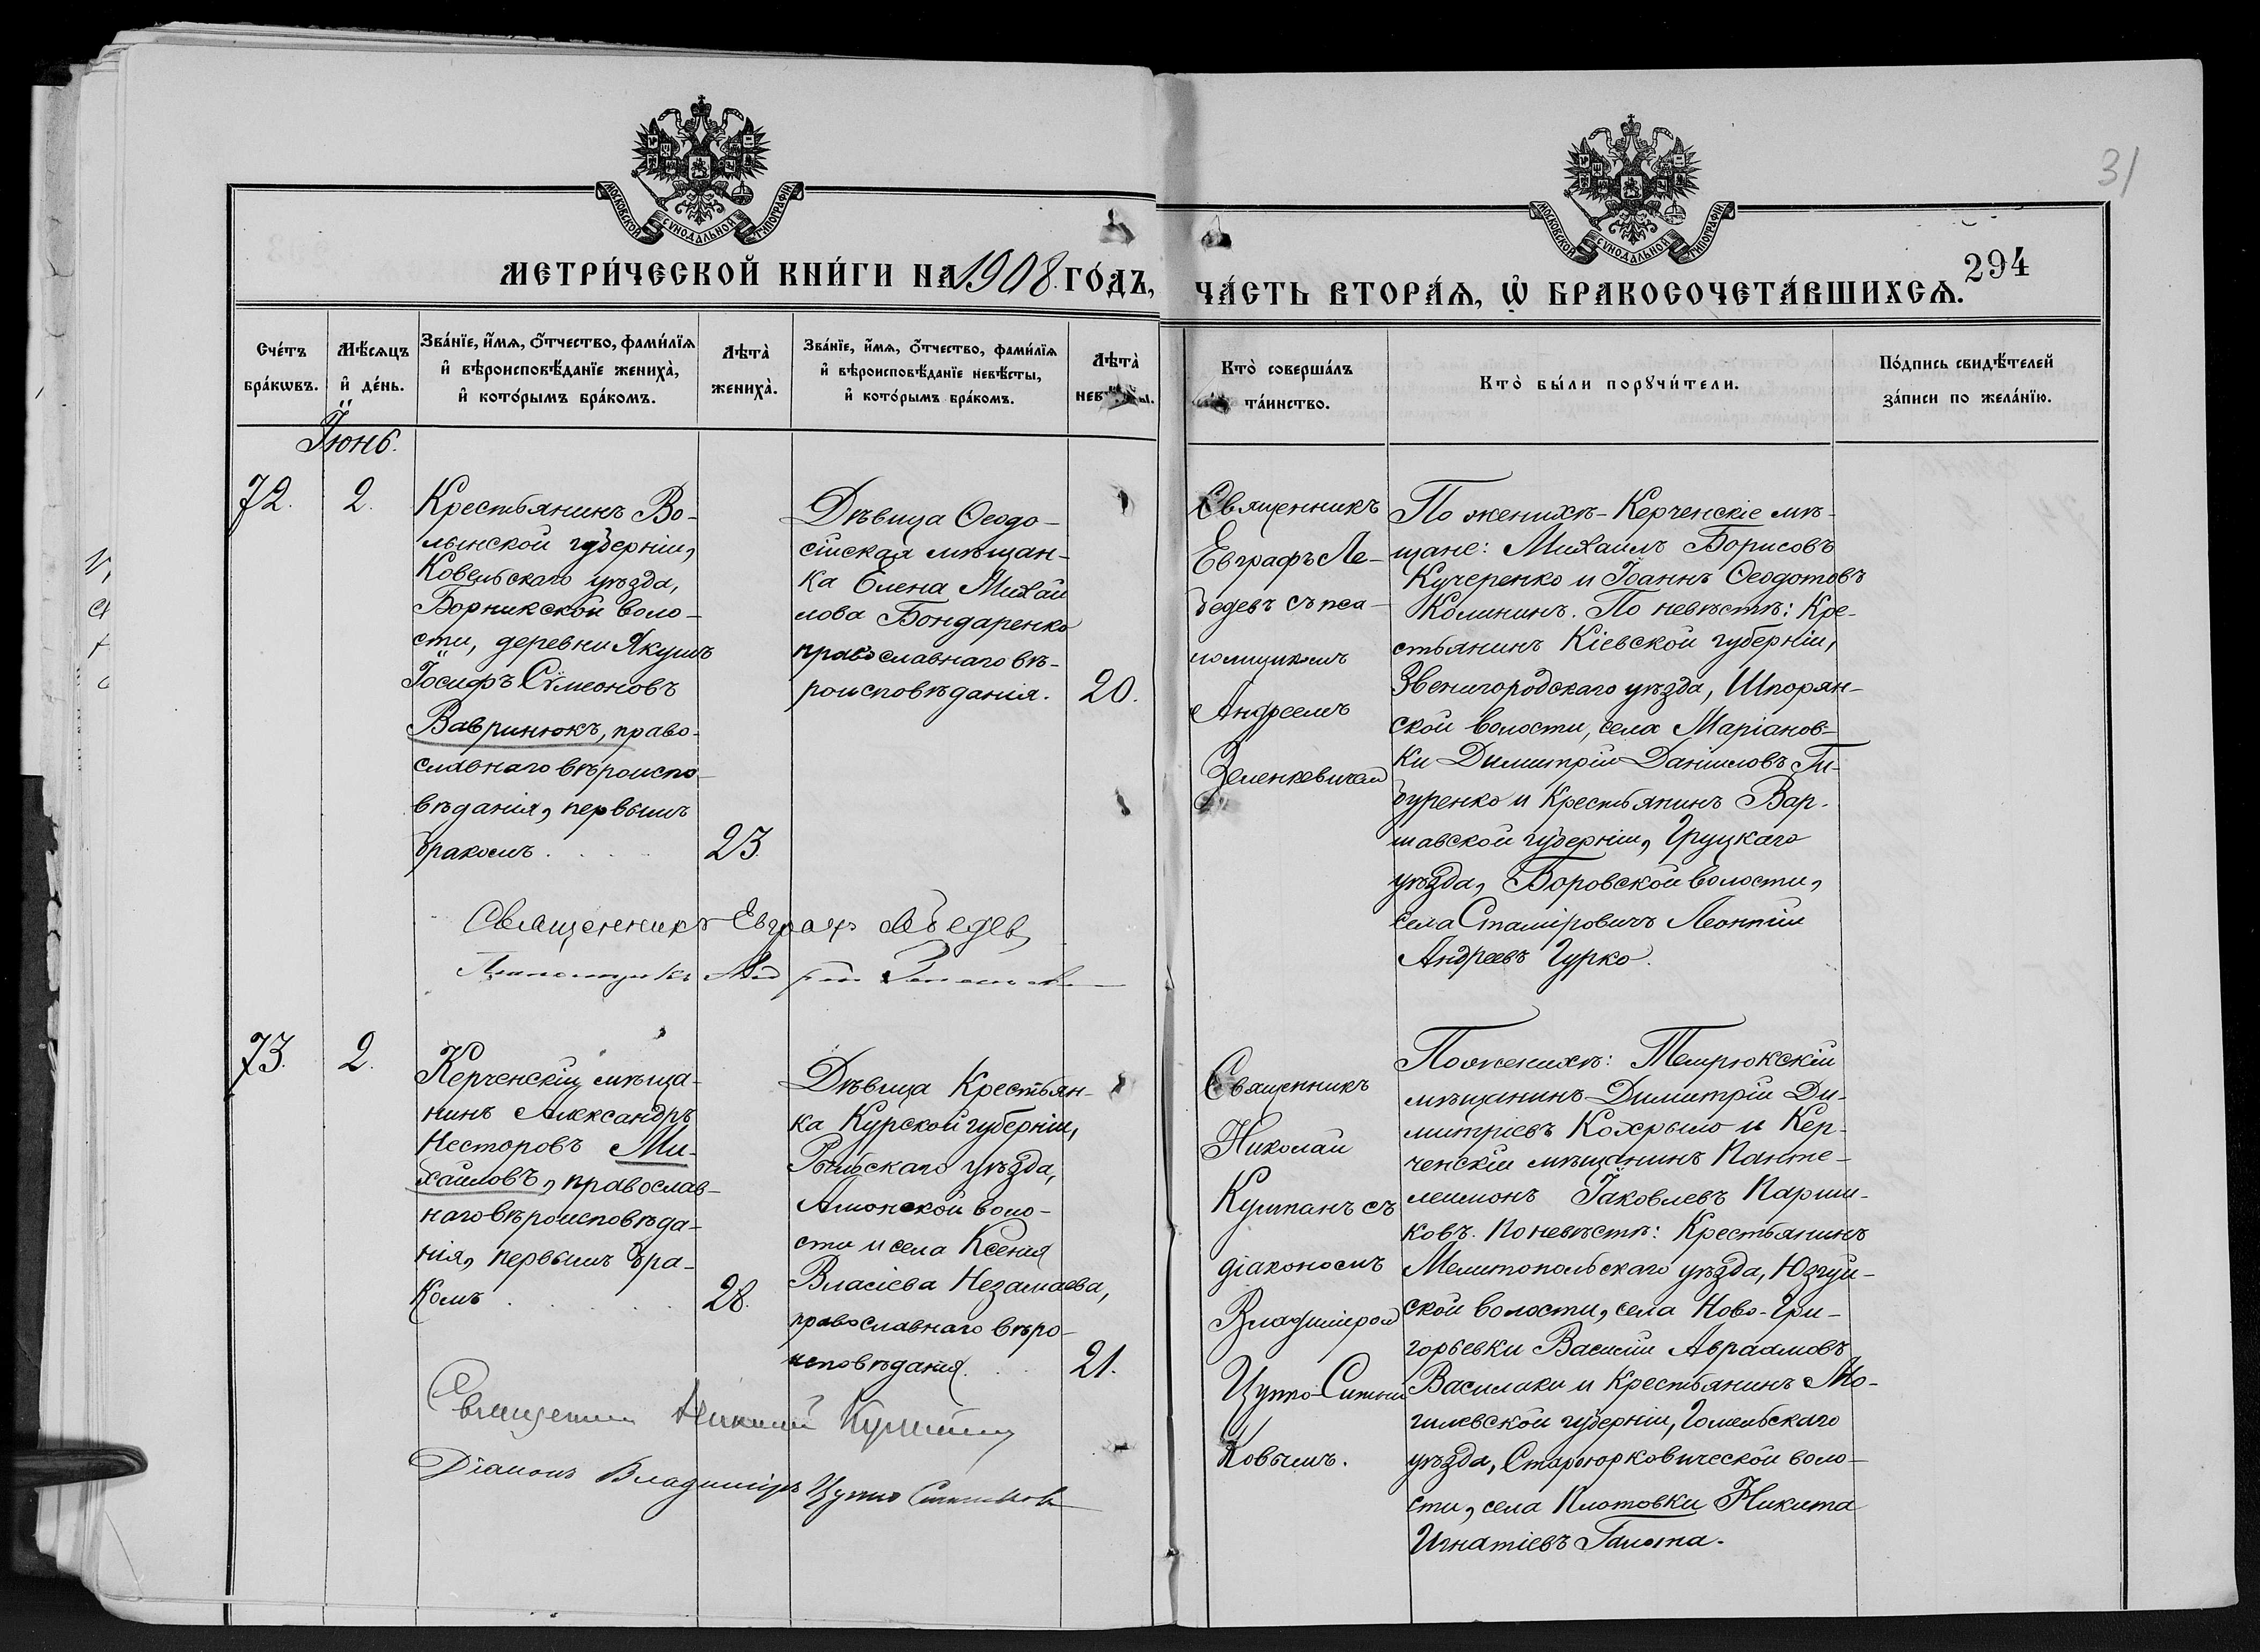 31
МОСКОВСКОЙ СѴНОДАЛЬНОЙ ТИПОГРАФІИ
МОСКОВСКОЙ СѴНОДАЛЬНОЙ ТИПОГРАФІИ
МЕТРИ́ЧЕСКОЙ КНИ́ГИ НА 1908 ГО́ДЪ,
ЧА́СТЬ ВТОРА́Ѧ, Ѽ БРАКОСОЧЕТА́ВШИХСѦ.
294
Сче́тъ
бра́кѡвъ.
Мѣ́сѧцъ
и҆ де́нь.
Зва́нїе, и҆́мѧ, ѻ҆́тчество, фами́лїѧ
и҆ вѣроисповѣ́данїе жениха̀,
и҆ кото́рымъ бра́комъ.
Лѣта̀
жениха̀.
Зва́нїе, и҆́мѧ, ѻ҆́тчество, фами́лїѧ
и҆ вѣроисповѣ́данїе невѣ́сты,
и҆ кото́рымъ бра́комъ.
Лѣта̀
невѣ́сты.
Кто̀ соверша́лъ
та́инство.
Кто̀ бы́ли порꙋчи́тели.
По́дпись свидѣ́телей
за́писи по жела́нїю.
Іюнь.
72.
2.
Крестьянинъ Во-
лынской губерніи,
Ковельскаго уѣзда,
Борникской воло-
сти, деревни Якушъ
Іосифъ Сѵмеоновъ
Вавринюкъ, право-
славнаго вѣроиспо-
вѣданія, первымъ
бракомъ.
23.
Дѣвица Ѳеодо-
сійская мѣщан-
ка Елена Михай
лова Бондаренко
православнаго вѣ-
роисповѣданія.
20.
Священникъ
Евграфъ Ле-
бедевъ съ пса-
ломщикомъ
Андреемъ
Зеленкевичем
По женихѣ - Керченскіе мѣ-
щане: Михаилъ Борисовъ
Кучеренко и Іоаннъ Ѳеодотовъ
Колининъ. По невѣстѣ: Кре-
стьянинъ Кіевской губерніи,
Звенигородскаго уѣзда, Шпорян-
ской волости, села Маріанов-
ки Димитрій Даніиловъ Ги-
буренко и Крестьянинъ Вар-
шавской губерніи, Груцкаго
уѣзда, Боровской волости,
села Стаміровичъ Леонтій
Андреевъ Гурко.
Священникъ Евграфъ Лебедев
Псаломщикъ Андрей
73.
2.
Керченскій мѣща-
нинъ Александръ
Несторовъ Ми-
хайловъ, православ-
наго вѣроисповѣда-
нія, первымъ бра-
комъ
28.
Дѣвица Крестьян-
ка Курской губерніи,
Рыльскаго уѣзда,
Амонской воло-
сти и села Ксенія
Власіева Незамаева,
православнаго вѣро-
исповѣданія.
21.
Священникъ
Николай
Кушпанъ съ
діакономъ
Владиміром
Цупко-Ситни
ковымъ.
По женихѣ: Темрюкскій
мѣщанинъ Димитрій Ди-
митріевъ Кохрыло и Кер-
ченскій мѣщанинъ Панте-
леимонъ Іаковлевъ Парши-
ковъ. По невѣстѣ: Крестьянинъ
Мелитопольскаго уѣзда, Юзкуй-
ской волости, села Ново-Гри-
горьевки Василій Авраамовъ
Василаки и Крестьянинъ Мо-
гилевской губерніи, Гомельскаго
уѣзда, Староюрковической воло-
сти, села Клотовки Никита
Игнатіевъ Галота.
Священник Николай Кушпан
Діаконъ Владиміръ Цупко Ситников